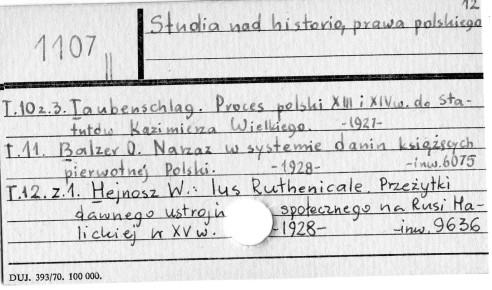 12
1107
Studia nad historią prawa polskiego
T.10 z.3. Taubenschlag. Proces polski XIII i XIV w. do sta-
tutów Kazimierza Wielkiego. -1927-
T.11. Balzer O. Narzaz w systemie danin książęcych
pierwotnej Polski. -1928- -inw.6075
T.12. z.1. Hejnosz W.: Ius Ruthenicale. Przeżytki
dawnego ustroju społecznego na Rusi Ha-
lickiej w XV w. -1928- -inw.9636
DUJ. 393/70. 100 000.